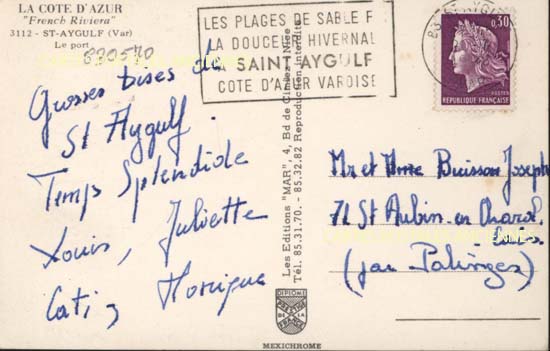 LA COTE D'AZUR
"French Riviera"
3112 - ST-AYGULF (Var)
Le port
830570
Grosses bises de
St Aygulf.
Temps Splendide
Louis, Juliette
Cati, Monique
LES PLAGES DE SABLE F
LA DOUCEUR HIVERNAL
A SAINT-AYGULF
COTE D'AZUR VAROISE
83 ST AYGULF
0,30
POSTES
REPUBLIQUE FRANÇAISE
Les Editions "MAR", 4, Bd de Cimiez, Nice
Tél. 85.31.70. - 85.32.82 Reproduction interdite
Mr et Mme Buisson Joseph
71 St Aubin en Charol
(par Palinges)
DIPLOME
PRESTIGE
DE LA
FRANCE
MEXICHROME